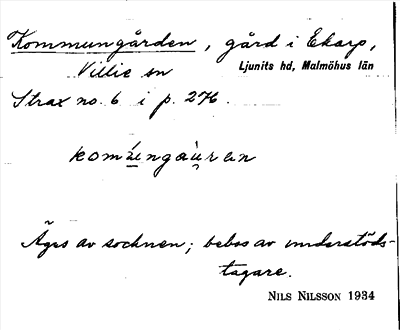 Kommungården, gård i Ekarp,
Villie sn Ljunits hd, Malmöhus län
Strax no. 6 i p. 276.
komúngàu̇ran
Äges av socknen; bebos av understöds-
tagare.
NILS NILSSON 1934